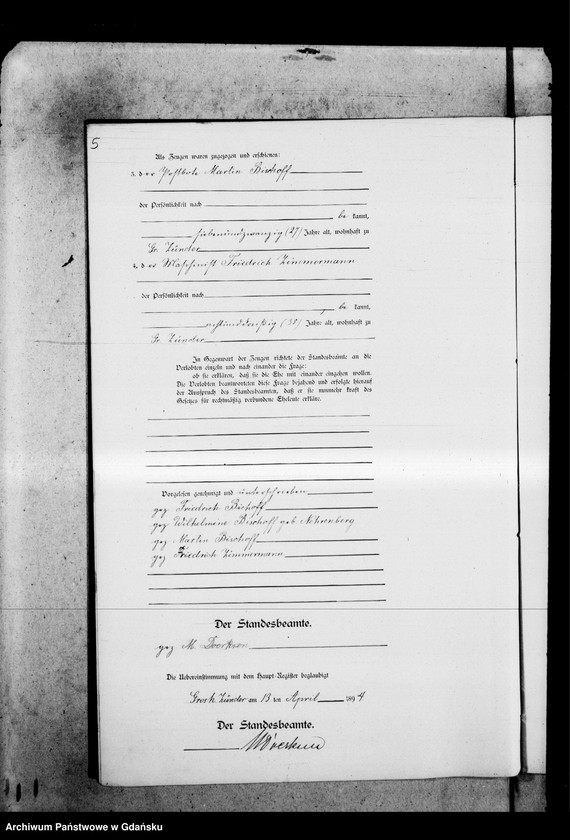 5
Als Zeugen waren zugezogen und erschienen:
3. der Postbote Martin Bischoff
der Persönlichkeit nach
be kannt,
siebenundzwanzig (27) Jahre alt, wohnhaft zu
Gr. Zünder
4. der Maschinist Friedrich Zimmermann
der Persönlichkeit nach
be kannt,
achtunddreißig (38) Jahre alt, wohnhaft zu
Gr. Zünder
In Gegenwart der Zeugen richtete der Standesbeamte an die
Verlobten einzeln und nach einander die Frage:
ob sie erklären, daß sie die Ehe mit einander eingehen wollen.
Die Verlobten beantworteten diese Frage bejahend und erfolgte hierauf
der Ausspruch des Standesbeamten, daß er sie nunmehr kraft des
Gesetzes für rechtmäßig verbundene Eheleute erkläre.
Vorgelesen genehmigt und unterschrieben
gez Friedrich Bischoff
gez Wilhelmine Bischoff geb. Nehrenberg
gez Martin Bischoff
gez Friedrich Zimmermann
Der Standesbeamte.
gez M.
Die Uebereinstimmung mit dem Haupt-Register beglaubigt
Groß Zünder am 13 ten April 1894
Der Standesbeamte.
Archiwum Państwowe w Gdańsku